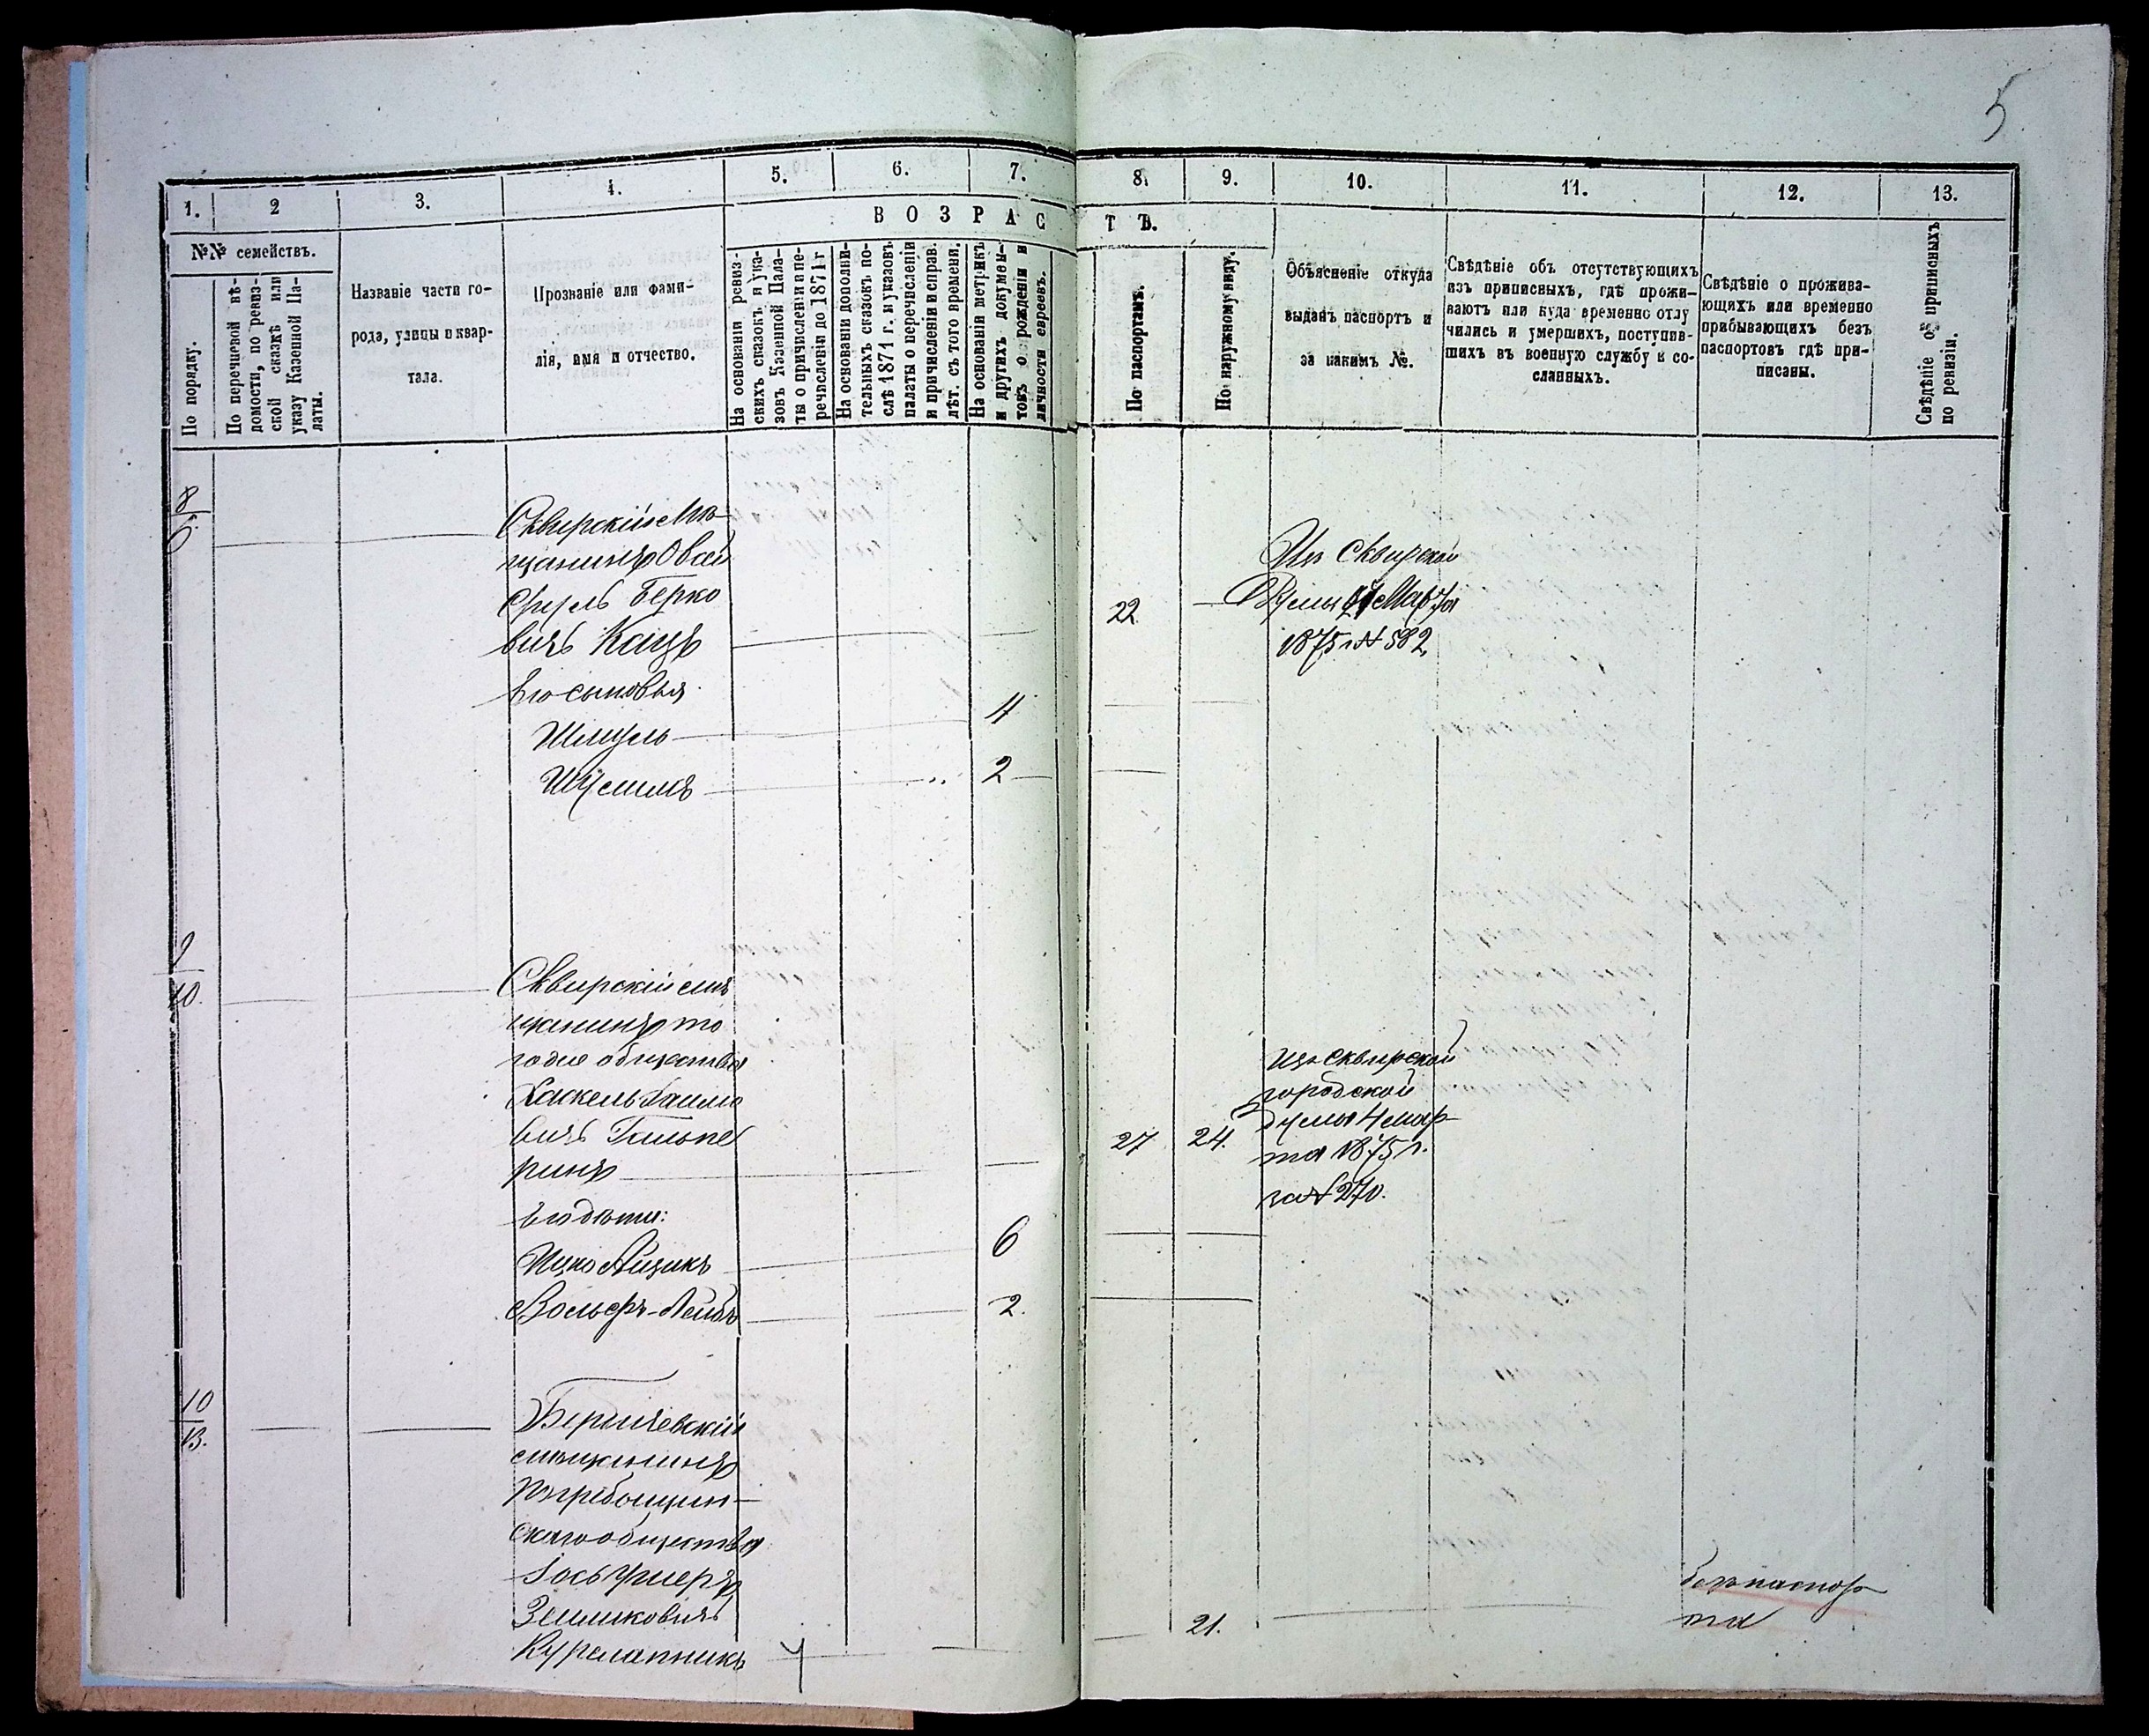 5
1. 2 3. 4. 5. 6. 7. 8. 9. 10. 11. 12. 13.
ВОЗРАСТЪ.
№№ семействъ.
По порядку.
По перечневой вѣ-
домости, по ревиз-
ской сказкѣ или
указу Казенной Па-
латы.
Названіе части го-
рода, улицы и квар-
тала.
Прозваніе или фами-
лія, имя и отчество.
На основаніи ревиз-
скихъ сказокъ и ука-
зовъ Казенной Пала-
ты о причисленіи и пе-
речисленіи до 1871 г
На основаніи дополни-
тельныхъ сказокъ по-
слѣ 1871 г. и указовъ
палаты о перечисленіи
и причисленіи и справ.
лѣт. съ того времени.
На основаніи метрикъ
и другихъ докумен-
товъ о рожденіи и
личности евреевъ.
По паспортамъ.
По наружному виду.
Объясненіе откуда
выданъ паспортъ и
за какимъ №.
Свѣдѣніе объ отсутствующихъ
изъ приписныхъ, гдѣ прожи-
ваютъ или куда временно отлу
чились и умершихъ, поступив-
шихъ въ военную службу и со-
сланныхъ.
Свѣдѣніе о прожива-
ющихъ или временно
прибывающихъ безъ
паспортовъ гдѣ при-
писаны.
Свѣдѣніе объ приписныхъ
по ревизіи.
8
Сквирскій мѣ-
щанинъ Овсей
Сруль Берко
вичъ Кацъ
22
Изъ Сквирской
Думы Марта
1875 г № 582
Его сыновья
Шмуль 4
Шулимъ 2
9
10.
Сквирскій мѣ
щанинъ то
го же общества
Хаскель
вичъ Гальпе
ринъ
27 24.
Изъ Сквирской
городской
Думы 4 мар-
та 1875 г.
за № 270.
Его дѣти:
Ицко Айзикъ 6
Вольфъ-Лейбъ 2.
10
13.
Бердичевскій
мѣщанинъ
Погребищен-
скаго общества
Іось Ушеръ
Зейликовичъ
21.
безъ паспор
та